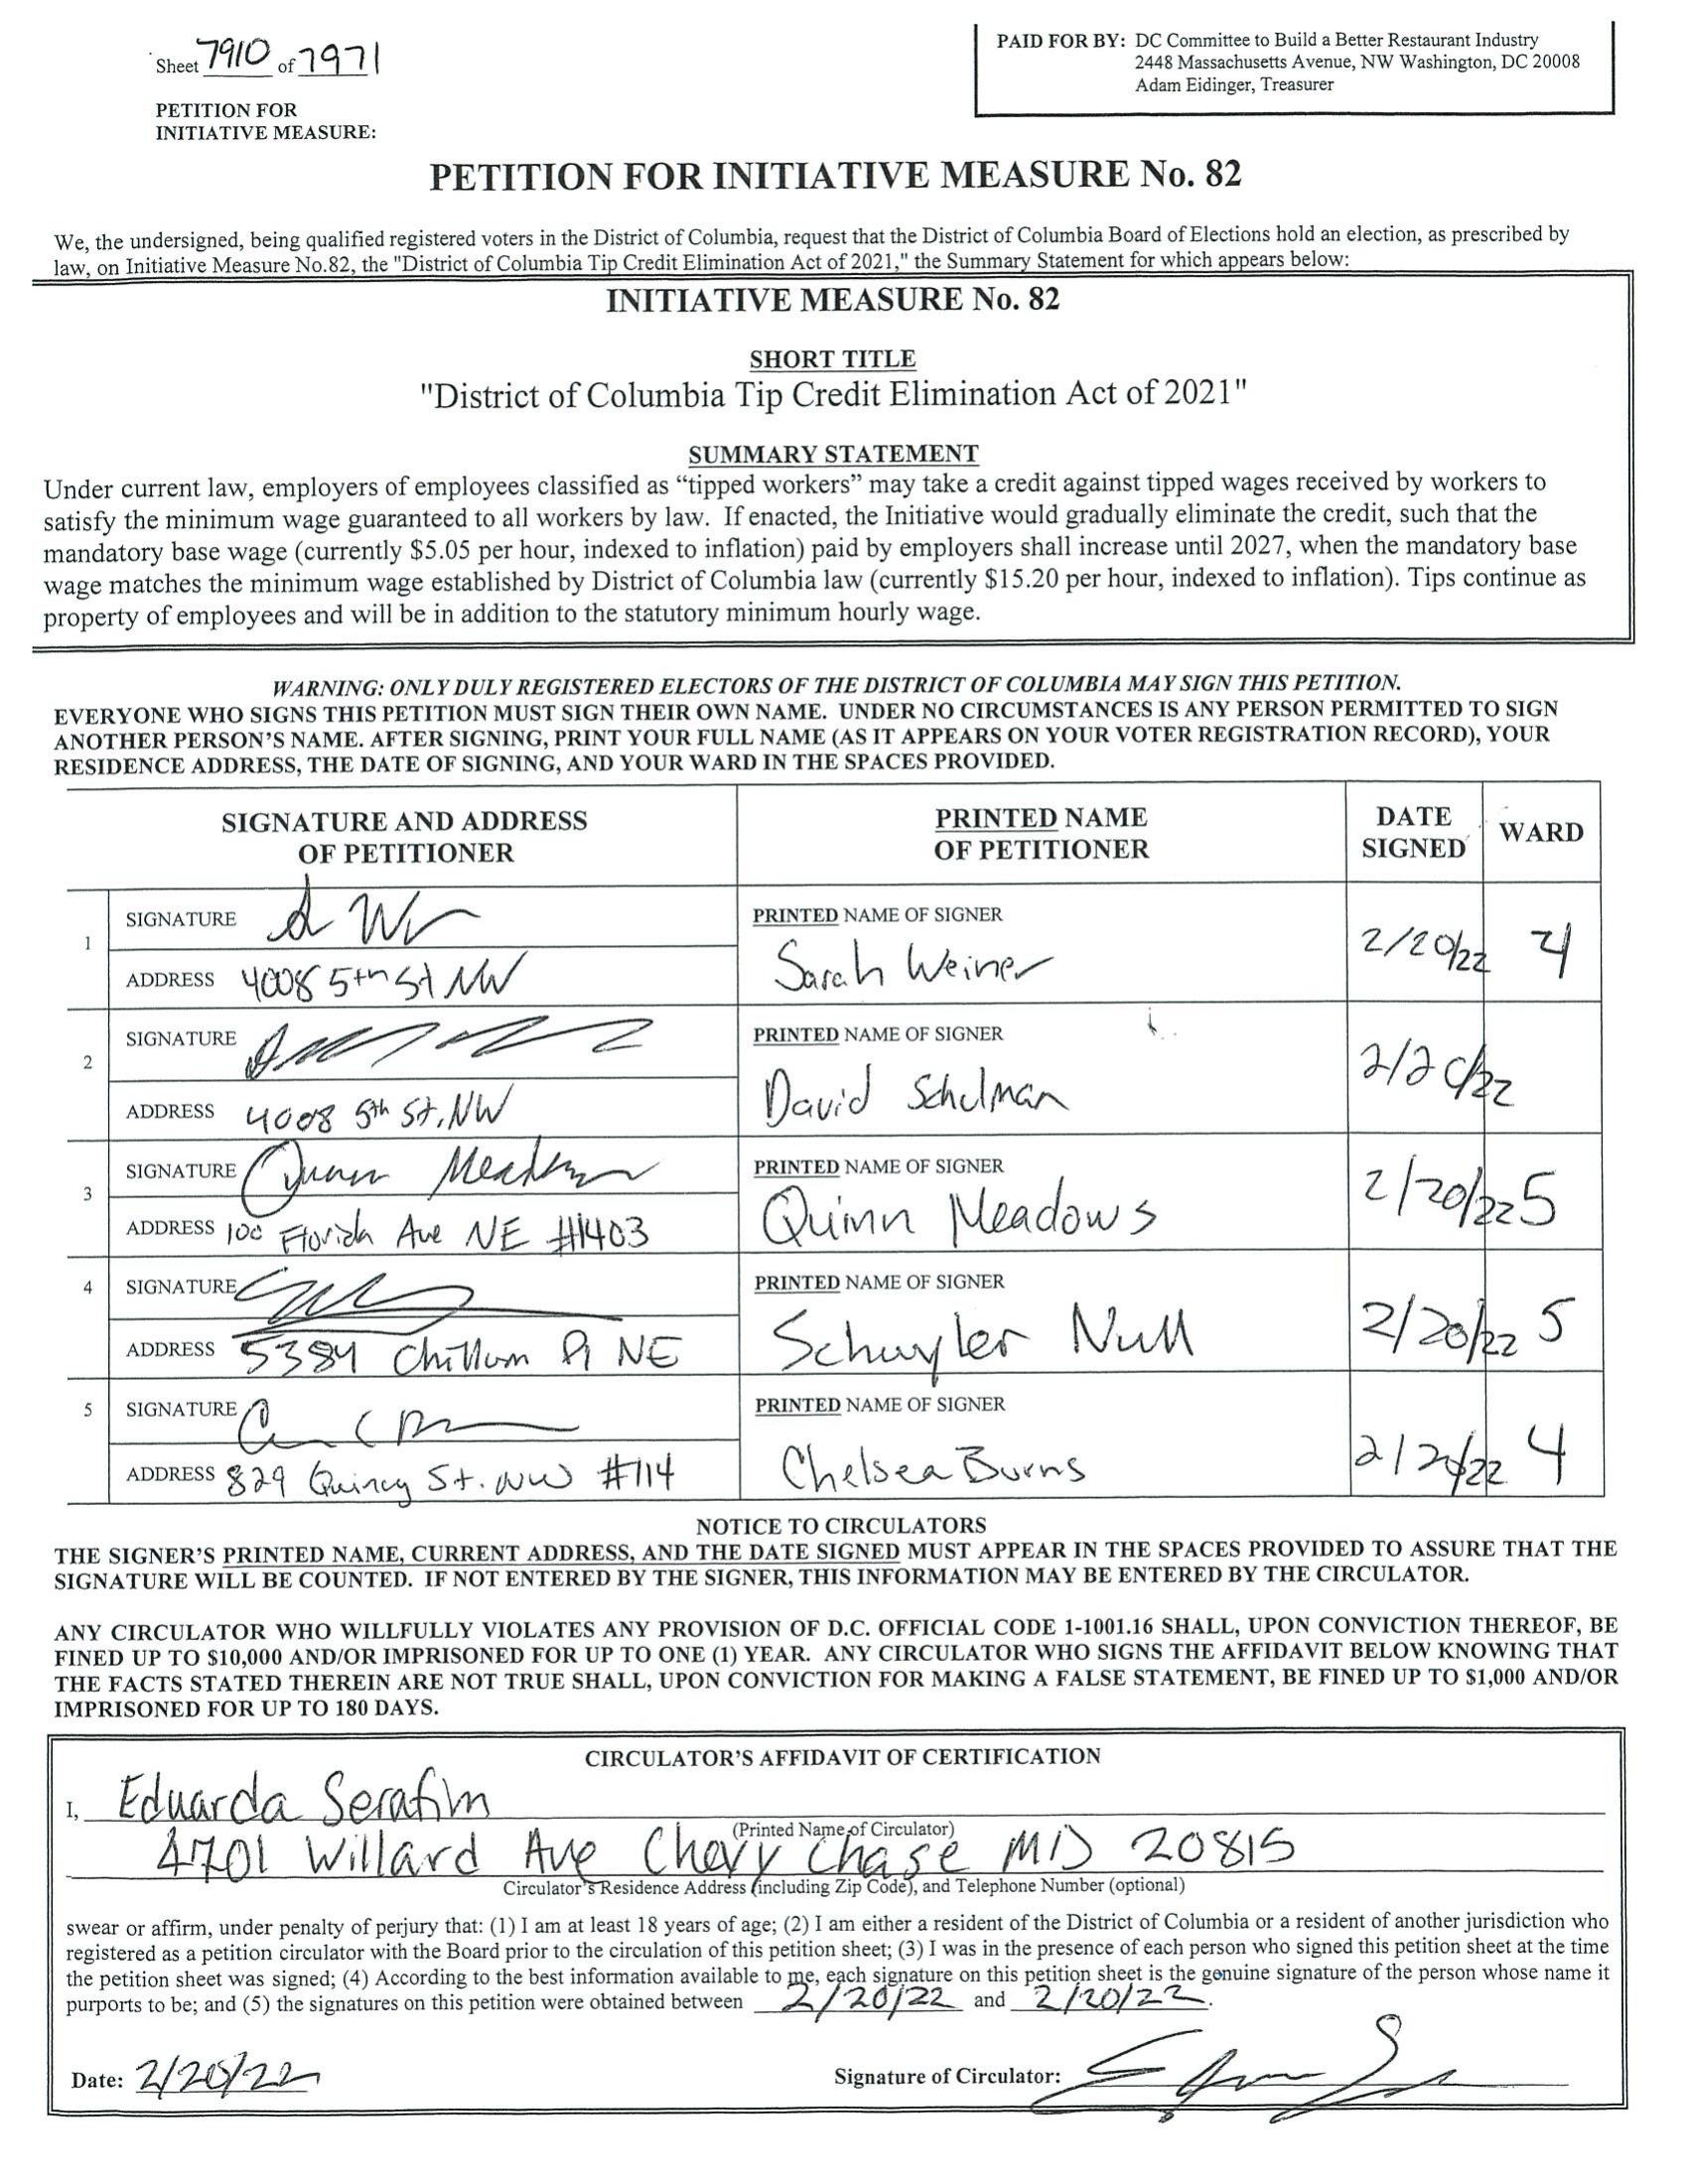 Sheet 7910 of 7971
PETITION FOR
INITIATIVE MEASURE:
PAID FOR BY: DC Committee to Build a Better Restaurant Industry
2448 Massachusetts Avenue, NW Washington, DC 20008
Adam Eidinger, Treasurer
PETITION FOR INITIATIVE MEASURE No. 82
We, the undersigned, being qualified registered voters in the District of Columbia, request that the District of Columbia Board of Elections hold an election, as prescribed by
law, on Initiative Measure No.82, the "District of Columbia Tip Credit Elimination Act of 2021," the Summary Statement for which appears below:
INITIATIVE MEASURE No. 82
SHORT TITLE
"District of Columbia Tip Credit Elimination Act of 2021"
SUMMARY STATEMENT
Under current law, employers of employees classified as “tipped workers” may take a credit against tipped wages received by workers to
satisfy the minimum wage guaranteed to all workers by law. If enacted, the Initiative would gradually eliminate the credit, such that the
mandatory base wage (currently $5.05 per hour, indexed to inflation) paid by employers shall increase until 2027, when the mandatory base
wage matches the minimum wage established by District of Columbia law (currently $15.20 per hour, indexed to inflation). Tips continue as
property of employees and will be in addition to the statutory minimum hourly wage.
WARNING: ONLY DULY REGISTERED ELECTORS OF THE DISTRICT OF COLUMBIA MAY SIGN THIS PETITION.
EVERYONE WHO SIGNS THIS PETITION MUST SIGN THEIR OWN NAME. UNDER NO CIRCUMSTANCES IS ANY PERSON PERMITTED TO SIGN
ANOTHER PERSON’S NAME. AFTER SIGNING, PRINT YOUR FULL NAME (AS IT APPEARS ON YOUR VOTER REGISTRATION RECORD), YOUR
RESIDENCE ADDRESS, THE DATE OF SIGNING, AND YOUR WARD IN THE SPACES PROVIDED.
SIGNATURE AND ADDRESS
OF PETITIONER
PRINTED NAME
OF PETITIONER
DATE
SIGNED
WARD
1
SIGNATURE
ADDRESS 4008 5th St NW
PRINTED NAME OF SIGNER
Sarah Weiner
2/20/22
4
2
SIGNATURE
ADDRESS 4008 5th St, NW
PRINTED NAME OF SIGNER
David Schulman
2/20/22
3
SIGNATURE Quinn Meadows
ADDRESS 100 Florida Ave NE #1403
PRINTED NAME OF SIGNER
Quinn Meadows
2/20/22
5
4
SIGNATURE
ADDRESS 5384 Chillum Pl NE
PRINTED NAME OF SIGNER
Schuyler Null
2/20/22
5
5
SIGNATURE
ADDRESS 829 Quincy St. NW #114
PRINTED NAME OF SIGNER
Chelsea Burns
2/20/22
4
NOTICE TO CIRCULATORS
THE SIGNER’S PRINTED NAME, CURRENT ADDRESS, AND THE DATE SIGNED MUST APPEAR IN THE SPACES PROVIDED TO ASSURE THAT THE
SIGNATURE WILL BE COUNTED. IF NOT ENTERED BY THE SIGNER, THIS INFORMATION MAY BE ENTERED BY THE CIRCULATOR.
ANY CIRCULATOR WHO WILLFULLY VIOLATES ANY PROVISION OF D.C. OFFICIAL CODE 1-1001.16 SHALL, UPON CONVICTION THEREOF, BE
FINED UP TO $10,000 AND/OR IMPRISONED FOR UP TO ONE (1) YEAR. ANY CIRCULATOR WHO SIGNS THE AFFIDAVIT BELOW KNOWING THAT
THE FACTS STATED THEREIN ARE NOT TRUE SHALL, UPON CONVICTION FOR MAKING A FALSE STATEMENT, BE FINED UP TO $1,000 AND/OR
IMPRISONED FOR UP TO 180 DAYS.
CIRCULATOR’S AFFIDAVIT OF CERTIFICATION
I, Eduarda Serafim
(Printed Name of Circulator)
4701 Willard Ave Chevy Chase MD 20815
Circulator’s Residence Address (including Zip Code), and Telephone Number (optional)
swear or affirm, under penalty of perjury that: (1) I am at least 18 years of age; (2) I am either a resident of the District of Columbia or a resident of another jurisdiction who
registered as a petition circulator with the Board prior to the circulation of this petition sheet; (3) I was in the presence of each person who signed this petition sheet at the time
the petition sheet was signed; (4) According to the best information available to me, each signature on this petition sheet is the genuine signature of the person whose name it
purports to be; and (5) the signatures on this petition were obtained between 2/20/22 and 2/20/22.
Date: 2/20/22
Signature of Circulator: